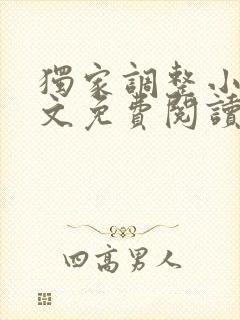 獨家調整小
文免費閱讀
四高男人